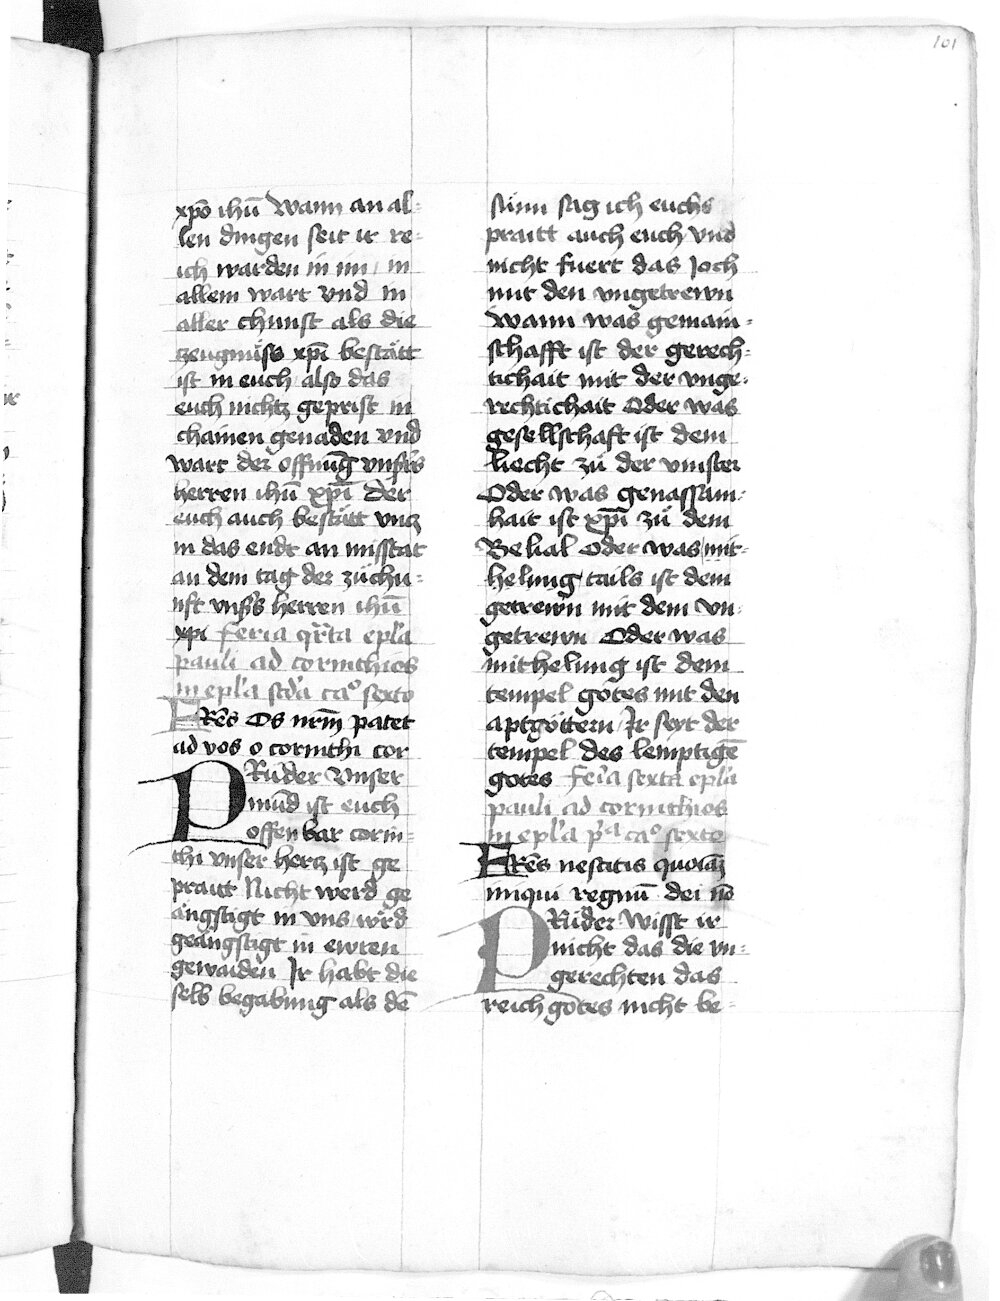 101
xpo ihū Wann an al-
len dingen seit ir re-
ich warden in im / in
allem wart vnd in
aller chunst als die
tzeugnüss xpī bestätt
ist in euch also das
euch nichtz geprist in
chainen genaden vnd
wart der offnūg vnsers
herren ihū xpī Der
euch auch bestätt vntz
in das endt an misstat
an dem tag der zuchu-
nft vnsers herren ihū
xpi feria qrta epla
pauli ad corinthios
in epla scda cao sexto
FRēs Os nrm̄ patet
ad vos o corinthi cor
PRuder Vnser
mūd ist euch
offenbar corin-
thi vnser hertz ist ge
praitt Nicht werd ge
ängstigt in vns wird
geängstigt in ewren
gewaiden Ir habt die
selb begabung als dē
sünn sag ich euchs
praitt auch euch vnd
nicht fuert das Joch
mit den vngetrewn
Wann was gemain-
schafft ist der gerech-
tichait mit der vnge-
rechtichait Oder was
gesellschaft ist dem
liecht zü der vinster
Oder was genassam-
hait ist xpī zü dem
Belial Oder was mit-
helung tails ist dem
getrewn mit dem vn-
getrewn Oder was
mithelung ist dem
tempel gotes mit den
aptgöttern Ir seyt der
tempel des lemptigē
gotes feria sexta epla
pauli ad corinthios
in epla pa cao sexto
FRēs nescitis quoiā
iniqui regnū dei nō
PRüder Wisst ir
nicht das die vn-
gerechten das
reich gotes nicht be-